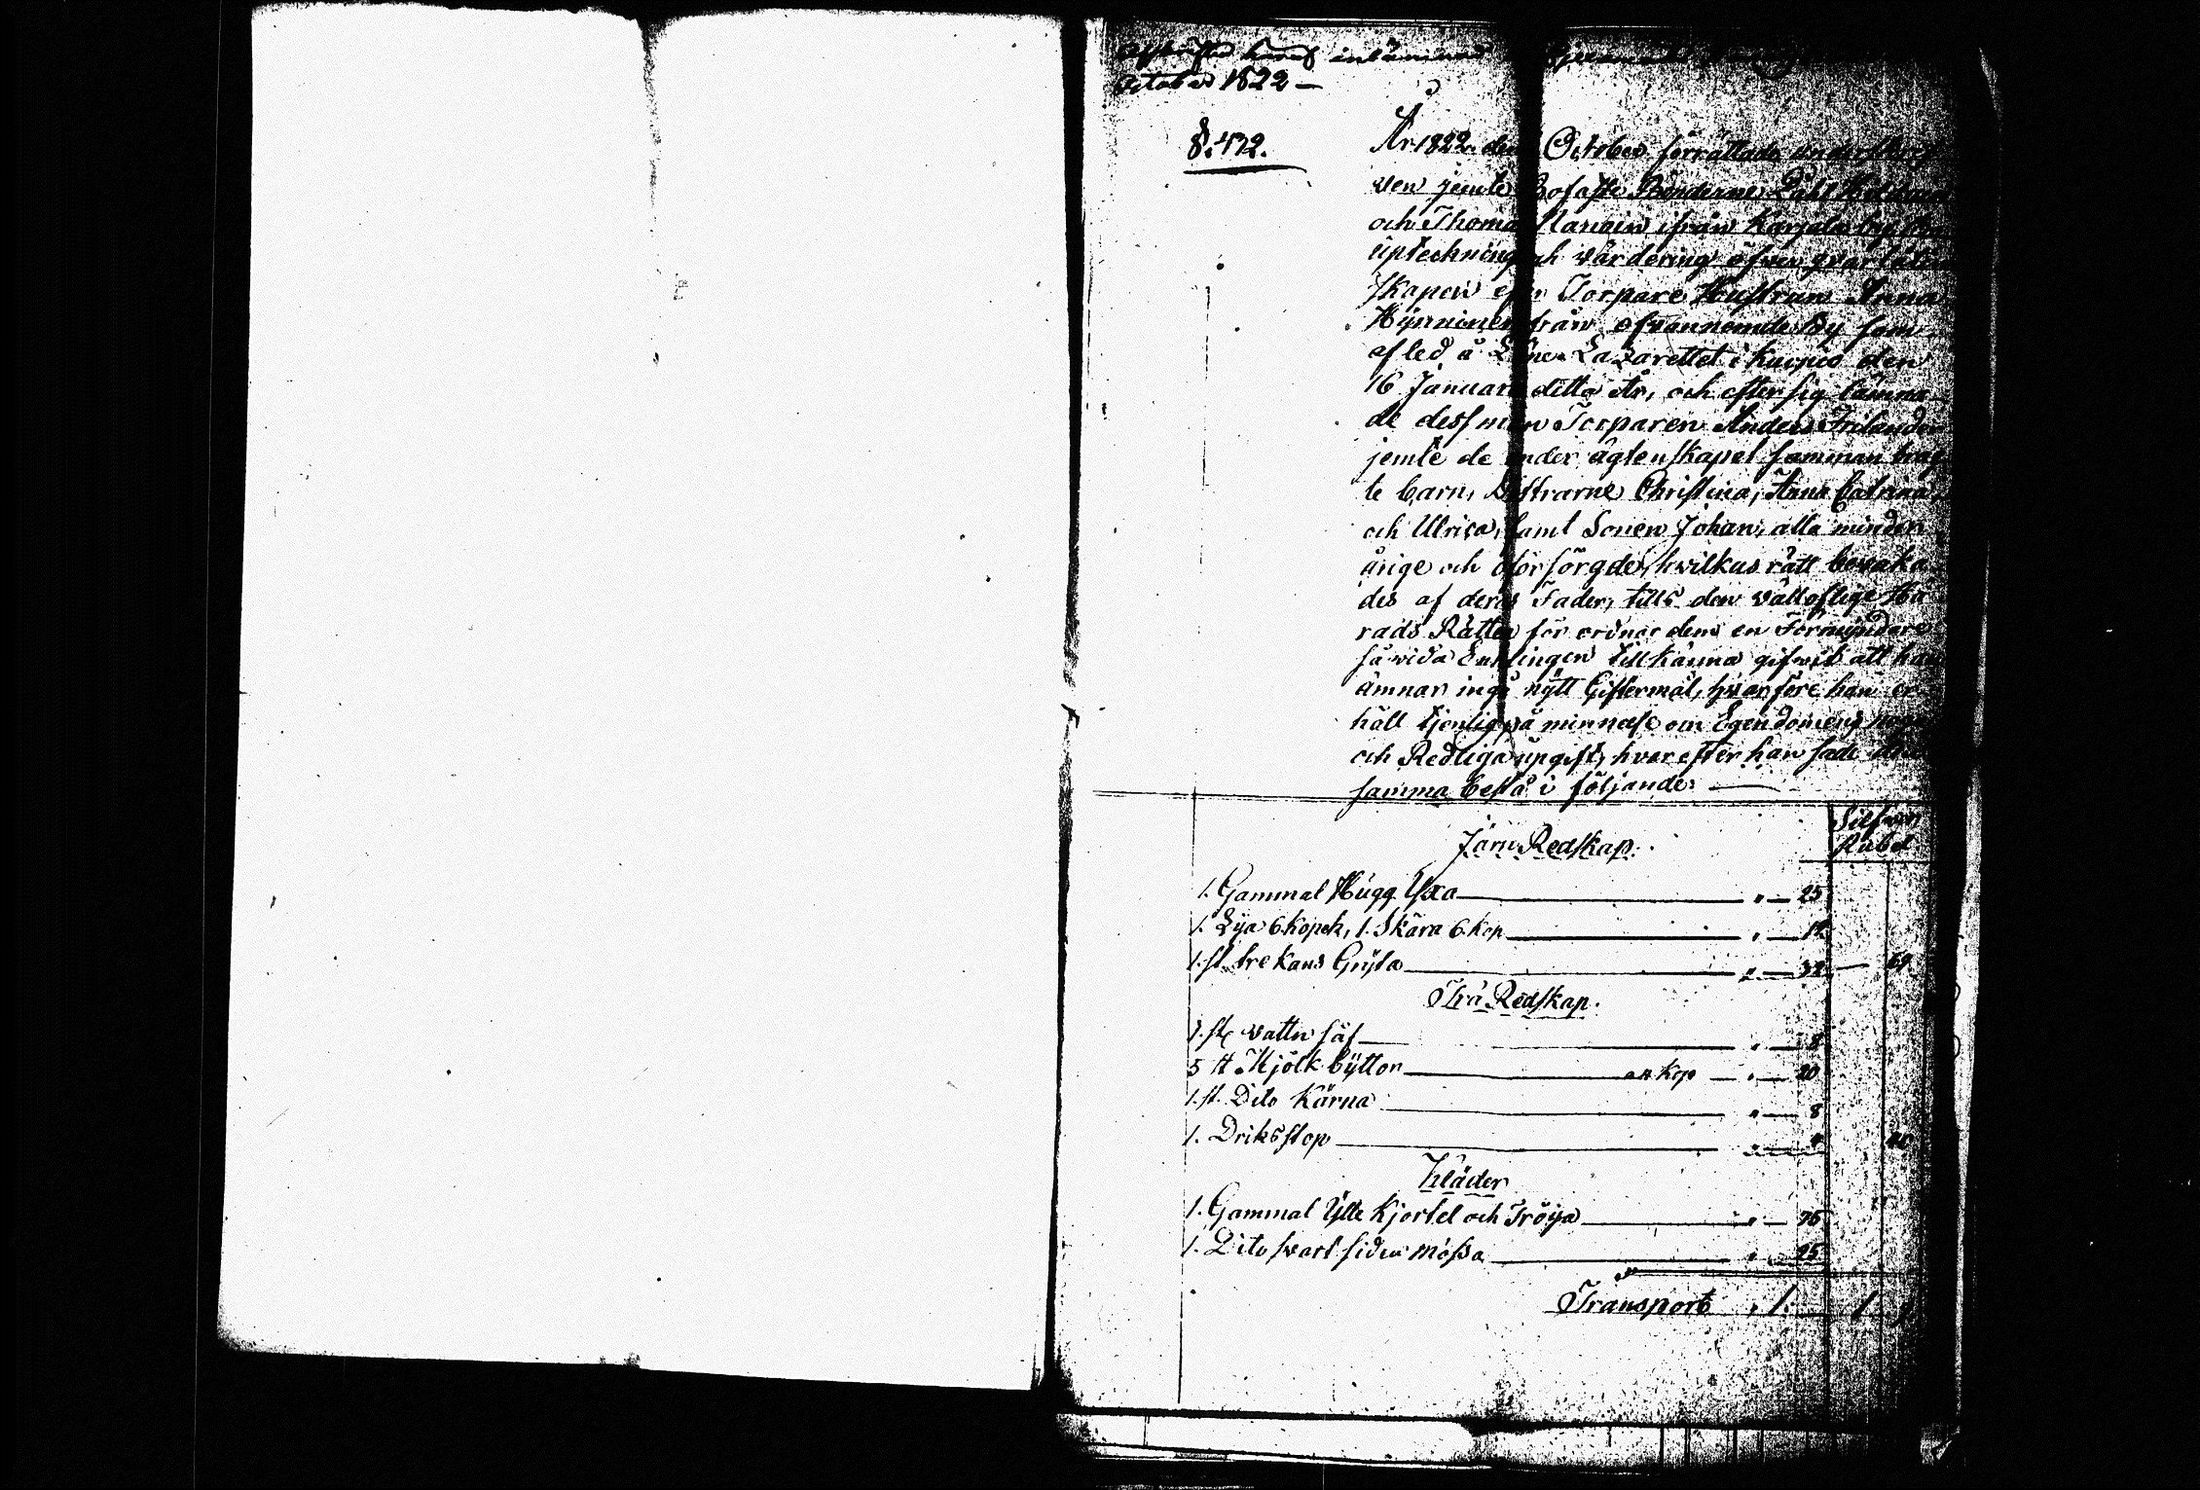 October 1822 —
§. 472.
År 1822 den October förrättade underskref
ven jemte Bofaste Bönderne
och Thomas ifrån Karjala by
üptechning och värdering öfver qvarlåten
skapen efter Torpare Hustrun Anna
Hÿnninen från ofvannemde by som
afled å Läne Lazarettet i Kuopio den
16 Januari ditto År, och efter sig lämna
de dess man Torparen Anders Frilander
jemte de under ägtenskapet samman brag
te barn, Döttrarne Christina, Anna Catrina,
och Ulrica, samt Sonen Johan, alla minder
årige och oförsörgde, hvilkas rätt bevaka
des af deras Fader, tills den välloflige Hä
rads Rätten för ordnar dem en Förmÿndare
så vida Enklingen tillkänna gifvit att han
ämnar ingå nÿtt Giftermål, hvarföre han er
höll tjenlig på minnelse om Egendomens
och Redliga üpgift, hvar efter han sade den
samma bestå i följande: —
Silfver
Rubel
Järn Redskap.
1. Gammal Hügg Yxa — " — 25
1. Lÿa 6 Kopek, 1. Skära 6 Kop — " — 12
1. st. tre Kans Grÿta — " — 32 — 69
Trä Redskap.
1. st. vattu säf — " — 8
5 st Mjölk bÿttor — a 4 Kop — " — 20
1. st. Dito Kärna — " — 8
1. Driksstop — " — 4 40
Kläder
1. Gammal Ÿlle Kjortel och Tröÿa — " — 75
1. Dito svart siden Mössa — " — 25
Transport " 1. — 1